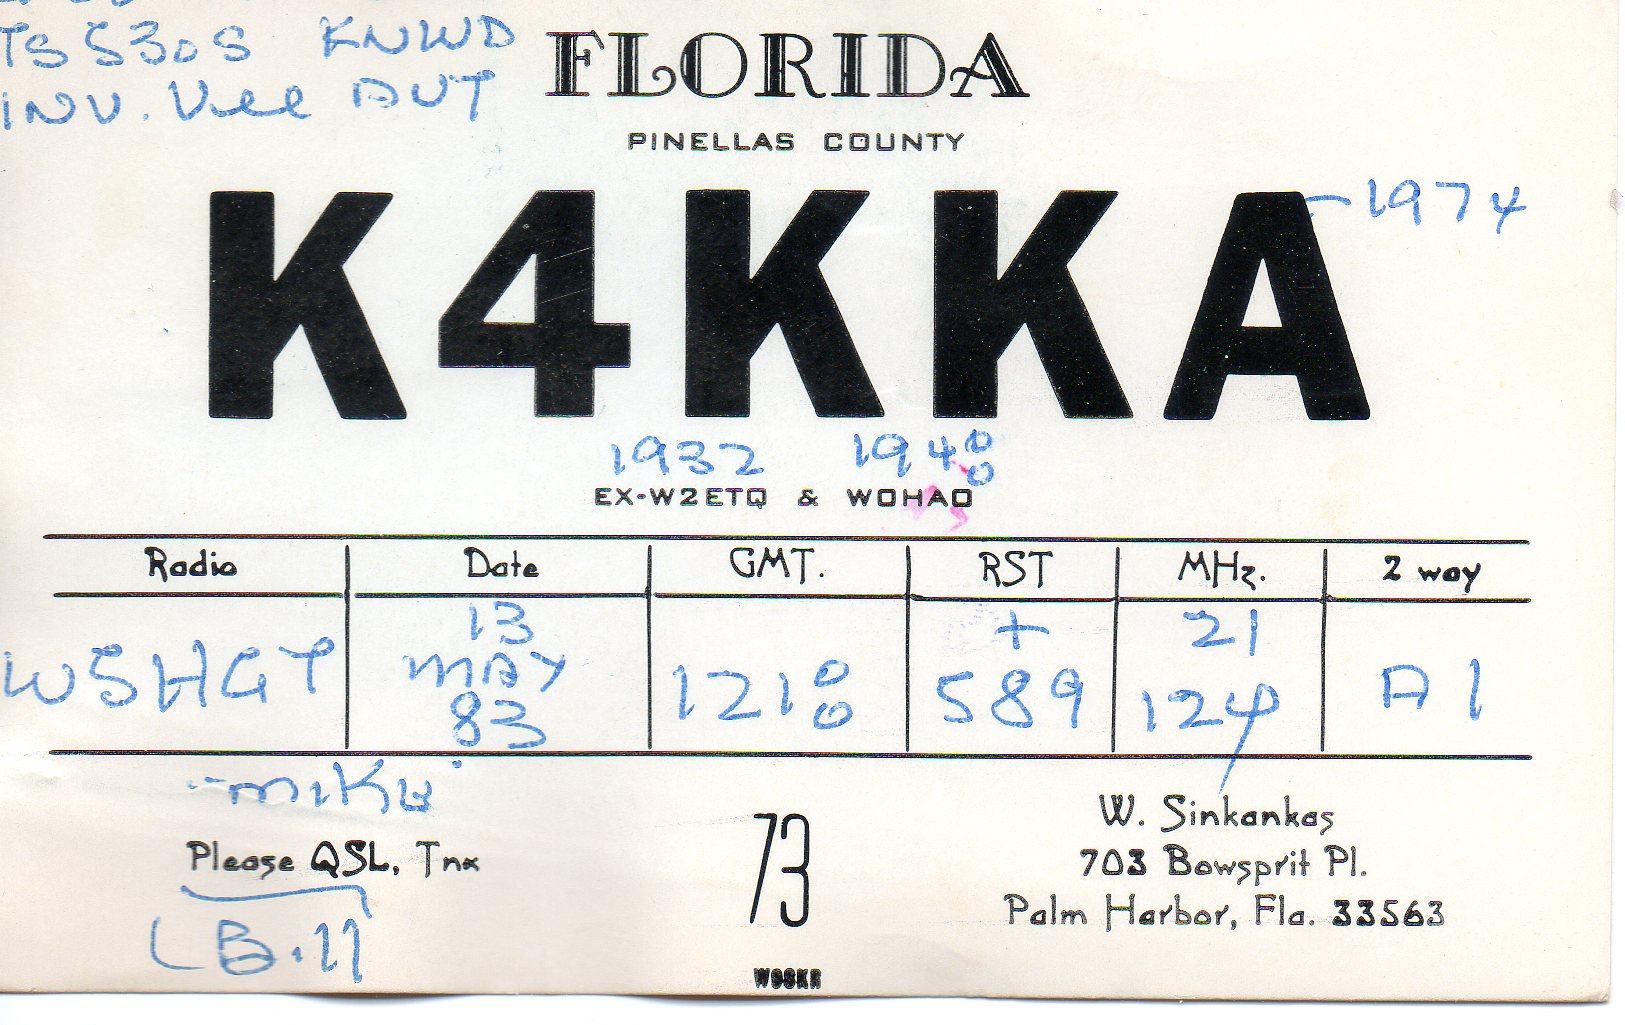 TS 530S KNWD
INV. Vee ANT
FLORIDA
PINELLAS COUNTY
K4KKA -1974
1932 1948
EX-W2ETQ & WOHAO
Radio Date GMT. RST MHz. 2 way
W5HGT 13 MAY 83 1218 + 589 21 124 A1
-MIKE
Please QSL, Tnx
LB.11
73
W. Sinkankas
703 Bowsprit Pl.
Palm Harbor, Fla. 33563